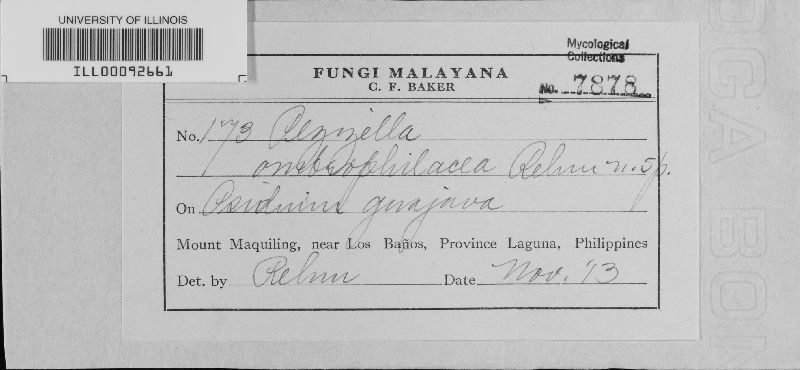 UNIVERSITY OF ILLINOIS
ILL00092661
Mycological
Collections
No. 7878
FUNGI MALAYANA
C. F. BAKER
No. 173 Pezizella
ombrophilacea Rehm n. sp.
On Psidium guajava
Mount Maquiling, near Los Baños, Province Laguna, Philippines
Det. by Rehm Date Nov. '13
OGA BON